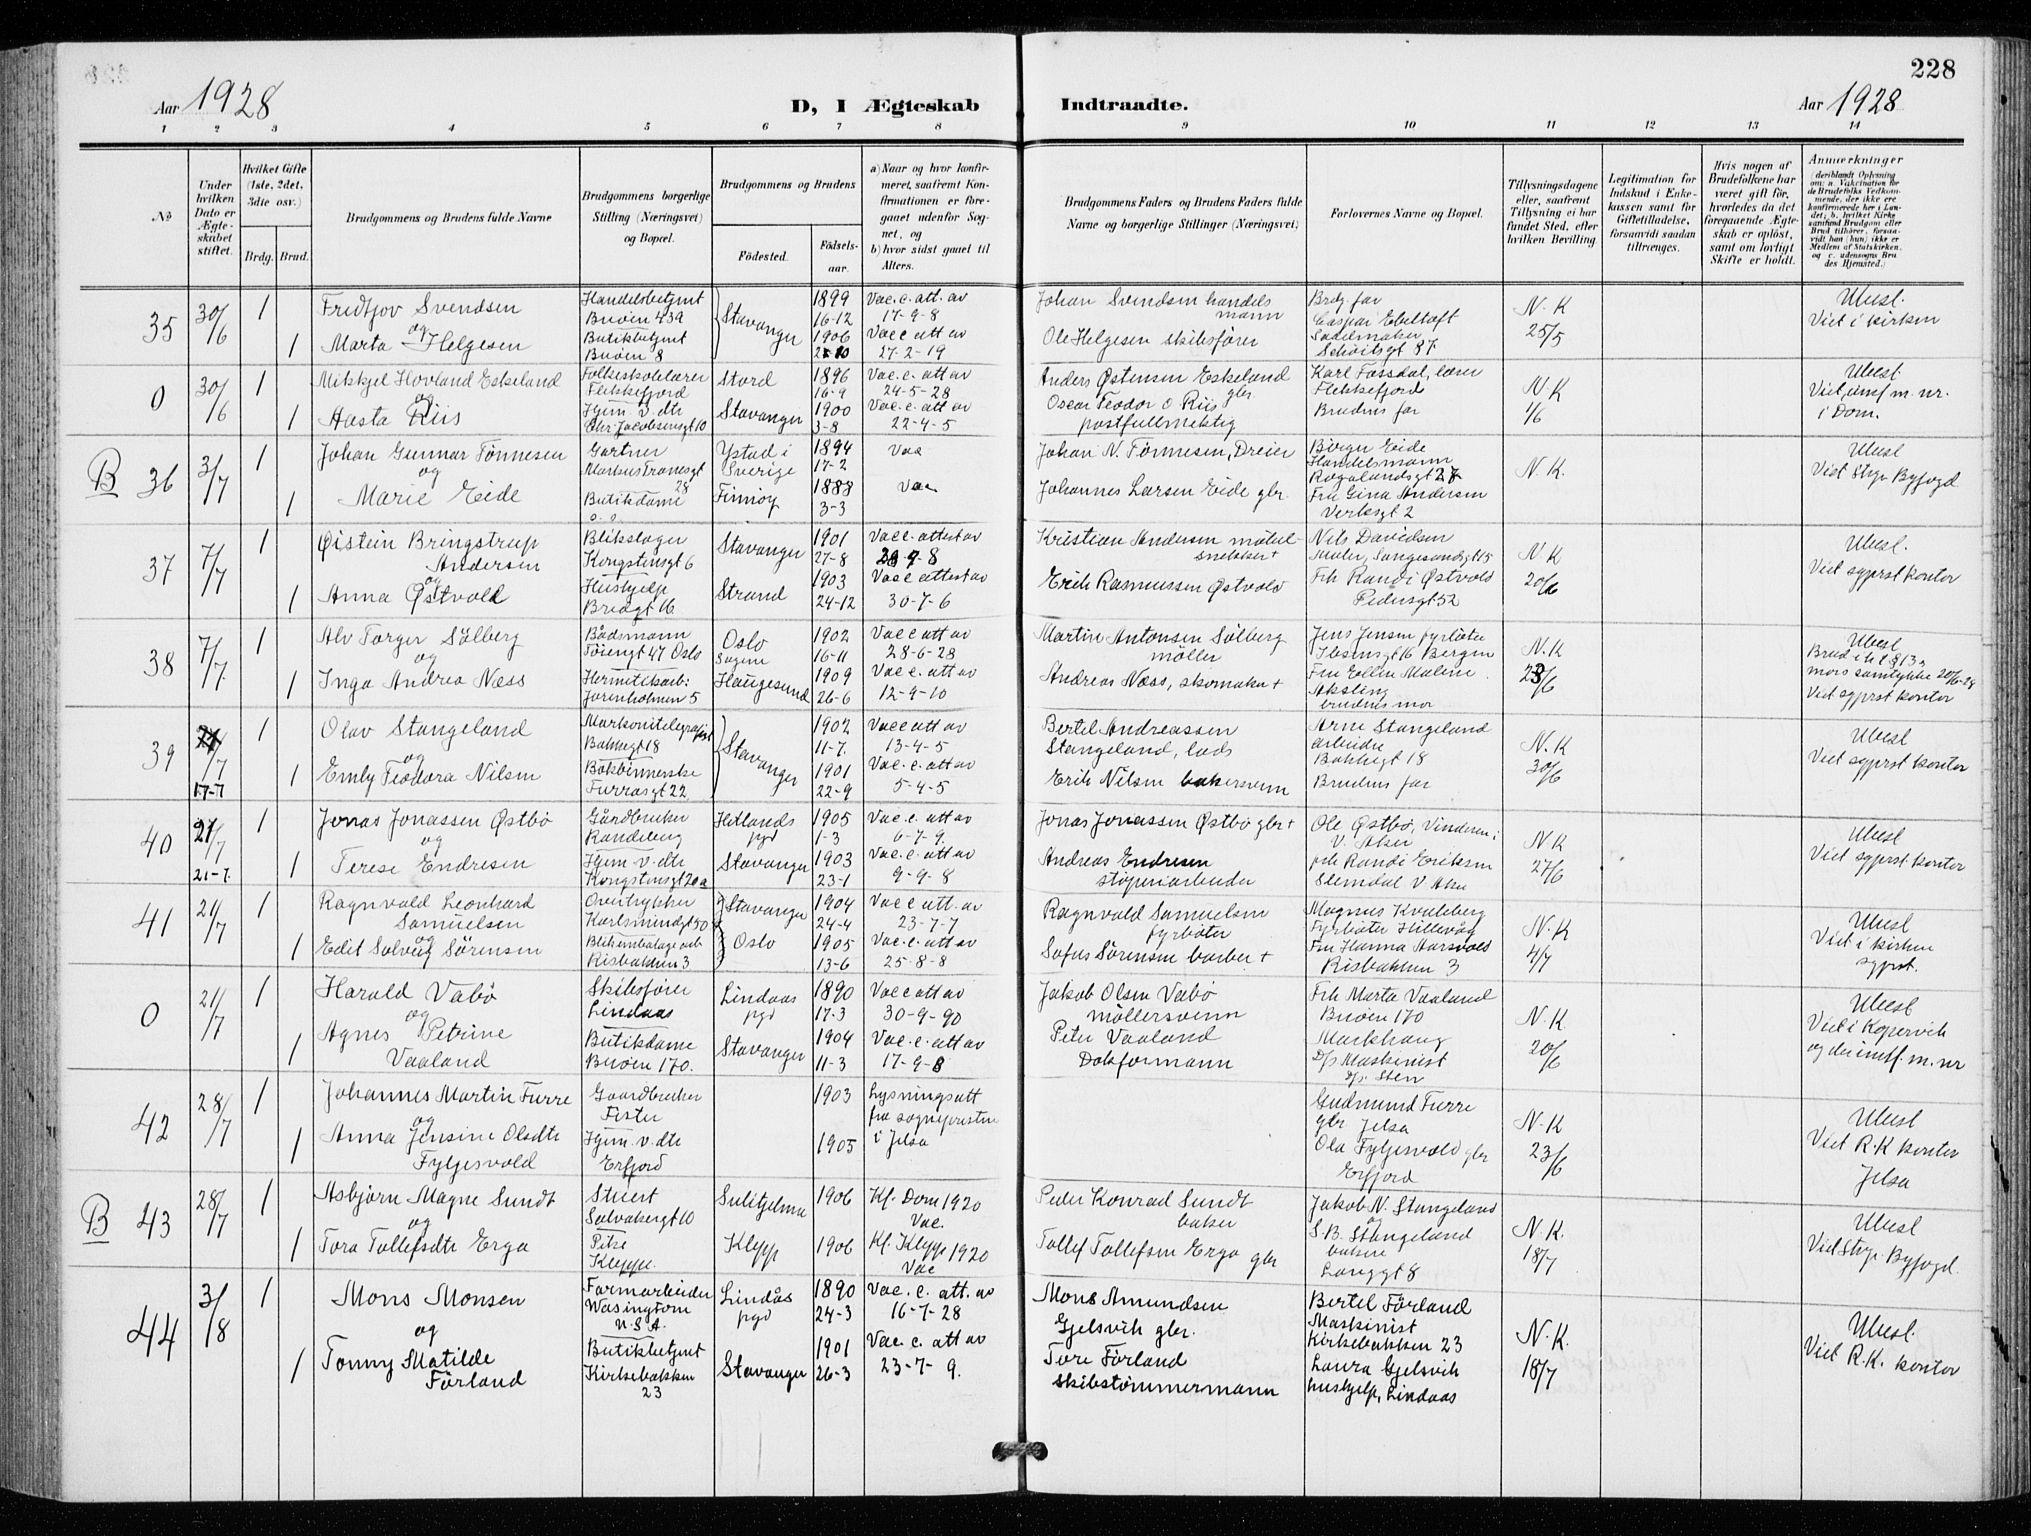 228
Aar 1928
D, I Ægteskab
Indtraadte.
Aar 1928
1 2 3 4 5 6 7 8 9 10 11 12 13 14
No
Under hvilken Dato er Ægteskabet stiftet.
Hvilket Gifte (1ste, 2det, 3die osv.)
Brdg. Brud.
Brudgommens og Brudens fulde Navne
Brudgommens borgerlige Stilling (Næringsvei) og Bopæl.
Brudgommens og Brudens
Fødested.
Fødselsaar.
a) Naar og hvor konfirmeret, saafremt Konfirmationen er foregaaet udenfor Sognet, og
b) hvor sidst gaaet til Alters.
Brudgommens Faders og Brudens Faders fulde Navne og borgerlige Stillinger (Næringsvei)
Forlovernes Navne og Bopæl.
Tillysningsdagene eller, saafremt Tillysning ei har fundet Sted, efter hvilken Bevilling.
Legitimation for Indskud i Enkekassen samt for Giftetilladelse, forsaavidt saadan tiltrænges.
Hvis nogen af Brudefolkene har været gift før, hvorledes da det foregaaende Ægteskab er opløst, samt om lovligt Skifte er holdt.
Anmerkninger (deriblandt Oplysning om: a. Vakcination for de Brudefolks Vedkommende, der ikke ere konfirmerede her i Landet; b. hvilket Kirkesamfund Brudgom eller Brud tilhører, forsaavidt han (hun) ikke er Medlem af Statskirken, og c. udensogns Brudes Hjemsted.)
35 30/6 1 Fredtjov Svendsen
og
1 Marta Helgesen
Handelsbetjent
Buøen 43a
Butikbetjent
Buøen 8
Stavanger
1899
16-12
1906
Vac. c. att. av
17-9-8
Vac c att av
27-2-19
Johan Svendsen handelsmann
Ole Helgesen skibsfører
Brdg. far
Caspar Ebeltoft
Sadelmaker
N. K
25/5
Ubesl.
Viet i kirken
0 30/6 1 Mikkjel Hovland Eskeland
og
1 Aasta Riis
Folkeskolelærer
Flekkefjord
Hjem. v. dtr
Chr. Jacobsensgt 10
Stord
Stavanger
1896
16-9
1900
3-8
Vac. c. att av
24-5-28
Vac. c. att av
22-4-5
Anders Østensen Eskeland
gbr
Oscar Teodor O Riis
postfullmektig
Karl Fossdal, lærer
Flekkefjord
Brudens far
N K
1/6
Ubesl.
Viet, innf m. nr.
i Dom.
B 36 3/7 1 Johan Gunnar Tönnesen
og
1 Marie Eide
Gartner
28
Butikdame
Ystad i
Sverige
Finnöy
1894
17-2
1888
3-3
Vac
Vac
Johan N. Tönnesen, Dreier
Johannes Larsen Eide gbr.
Børge Eide
Handelsmann
Rogalandsgt 27
Fru Gina Andersen
Verksgt 2
N. K.
Ubesl
Viet Stvgr Byfogd
37 7/7 1 Øistein Bringstrup
Andersen
og
1 Anna Østvold
Blikslager
Kongstensgt 6
Hushjelp
Bredgt 16
Stavanger
Strand
1901
27-8
1903
24-12
Vac c. attest av
Vac c attest av
30-7-6
Kristian Andersen möbelsnekker +
Erik Rasmussen Østvold
Nils Davidsen
Frk Randi Østvold
Pedersgt 52
N. K
20/6
Ubesl.
Viet sgprst kontor
38 7/7 1 Alv Torger Sölberg
og
1 Inga Andrea Næss
Bådsmann
Töiengt 47 Oslo
Hermetikarb:
Jorenholmen 5
Oslo
Sagene
Haugesund
1902
16-11
1909
26-6
Vac c att av
28-6-28
Vac c. att av
12-9-10
Martin Antonsen Sölberg
möller
Andreas Næss, skomaker +
Jens Jensen fyrböter
Ibsensgt 16 Bergen
Fru Ellen Malene
Aksling
brudens mor
N. K
23/6
Ubesl
mors samtykke 20/6-28
Viet sgprst kontor
39 7/7 1 Olav Stangeland
17-7
og
1 Emly Teodora Nilsen
Markonitelegrafist
Bakkegt 18
Bokbinnerske
Furrasgt 22
Stavanger
1902
11-7.
1901
22-9
Vac c att av
13-4-5
Vac. c. att av
5-4-5
Bertel Andreassen
Stangeland, lods
Erik Nilsen bakersvenn
Arne Stangeland
arbeider
Bakkegt 18
Brudens far
N. K
30/6
Ubesl
Viet sgprst kontor
40 21/7 1 Jonas Jonassen Østbö
21-7. og
1 Terese Endresen
Gårdbruker
Randeberg
Hjem. v. dtr
Kongstensgt 20a
Hetlands
pgd
Stavanger
1905
1-3
1903
23-1
Vac. c. att av
6-7-9.
Vac. c. att av
9-9-8
Jonas Jonassen Østbö gbr +
Andreas Endresen
støperiarbeider
Ole Østbö, Vinderen i
V. Aker
frk Randi Eriksen
Slemdal V Aker
N K
27/6
Ubesl
Viet sgprst. kontor
41 21/7 1 Ragnvald Leonhard
Samuelsen
og
1 Edit Solveig Sörensen
Overtrykker
Karlsminnegt 50
Blikemballage arb
Risbakken 3
Stavanger
Oslo
1904
24-4
1905
13-6
Vac c att. av
23-7-7
Vac. c. att av
25-8-8
Ragnvald Samuelsen
fyrböter
Sofus Sörensen barber +
Magnus Kvaleberg
Fyrböter Hillevåg
Fru Hanna Aarsvold
Risbakken 3
N. K
4/7
Ubesl
Viet i kirken
sgprst.
0 21/7 1 Harald Vabö
og
1 Agnes Petrine
Vaaland
Skibsförer
Lindaas
Butikdame
Buöen 170.
Lindaas
pgd
Stavanger
1890
17-3
1904
11-3
Vac c att av
30-9-90
Vac. c. att av
17-9-8
Jakob Olsen Vabö
möllersvenn
Peter Vaaland
Dokformann
Frk Marta Vaaland
Buöen 170
Markhaug
D/s Maskinist
D/s. Sten
N. K
20/6
Ubesl
Viet i Kopervik
og der innf. m. nr
42 28/7 1 Johannes Martin Furre
og
1 Anna Jensine Olsdtr
Fylgesvold
Gaardbruker
Fister
Hjem. v. dtr
Erfjord
1903
1905
Lysningsatt
fra sognepresten
i Jelsa
Gudmund Furre
gbr Jelsa
Ola Fylgesvold gbr
Erfjord
N. K
23/6
Ubesl
Viet R. K kontor
Jelsa
B 43 28/7 1 Asbjörn Magne Sundt
og
1 Tora Tollefsdtr Erga
Stuert
Solvabergt 10
Pike
Kleppe.
Sulitjelma
Klepp
1906
1906
Kf. Dom 1920
Vac.
Kf. Klepp 1920
Vac
Peder Konrad Sundt
baker
Tollef Tollefsen Erga gbr
Jakob N. Stangeland
og
S. B. Stangeland
bakere
Langgt 8
N. K.
18/7
Ubesl
Viet Stvgr. Byfogd.
44 3/8 1 Mons Monsen
og
1 Tonny Matilde
Förland
Farmarbeider
Wasingtom
U. S. A.
Butikbetjent
Kirkebakken
23
Lindås
pgd
Stavanger
1890
24-3
1901
26-3
Vac. c. att. av
16-7-28
Vac. c. att av
23-7-9.
Mons Amundsen
Gjelsvik gbr.
Tore Förland
Skibstömmermann
Bertel Förland
Maskinist
Kirkebakken 23
Laura Gjelsvik
huskjelp, Lindaas
N. K.
18/7
Ubesl.
Viet R. K. kontor